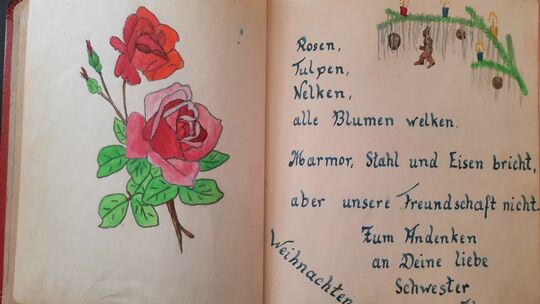 Rosen,
Tulpen,
Nelken,
alle Blumen welken.
Marmor, Stahl und Eisen bricht,
aber unsere Freundschaft nicht.
Zum Andenken
an Deine liebe
Schwester
Weihnachten